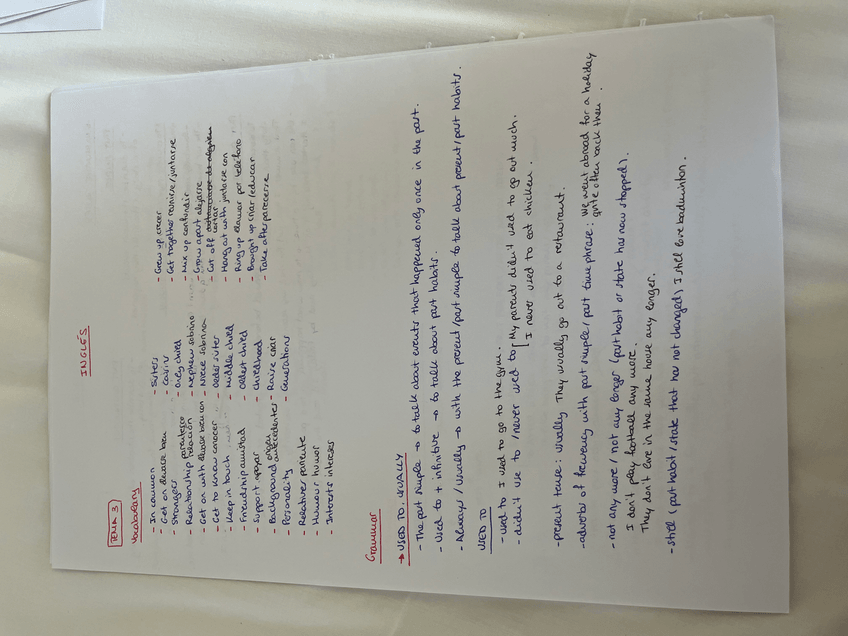 INGLÉS
TEMA 3
Vocabulary
- In common
- Get on llevarse bien
- Strangers
- Relationship parentesco relación
- Get on with llevarse bien con
- Get to know conocer
- Keep in touch
- Friendship amistad
- Support apoyar
- Background origen antecedentes
- Personality
- Relatives pariente
- Humour humor
- Interests intereses
- Sisters
- Only child
- Nephew sobrino
- Niece sobrina
- Older sister
- Middle child
- Oldest child
- Childhood
- Raise criar
- Generations
- Grew up crecer
- Get together reunirse/juntarse
- Mix up confundir
- Grow apart alejarse
- Cut off cortar
- Hang out with juntarse con
- Ring up llamar por teléfono
- Brought up criar/educar
- Take after parecerse
Grammar
→ USED TO, USUALLY
- The past simple → to talk about events that happened only once in the past.
- Used to + infinitive → to talk about past habits.
- Always/Usually → with the present/past simple to talk about present/past habits.
USED TO
- used to I used to go to the gym.
- didn't use to/never used to [My parents didn't used to go out much.
I never used to eat chicken.
- present tense: usually They usually go out to a restaurant.
- adverbs of frequency with past simple/past time phrase: We went abroad for a holiday
quite often back then.
- not any more/not any longer (past habit or state has now stopped).
I don't play football any more.
They don't live in the same house any longer.
- still (past habit/state that has not changed) I still love badminton.